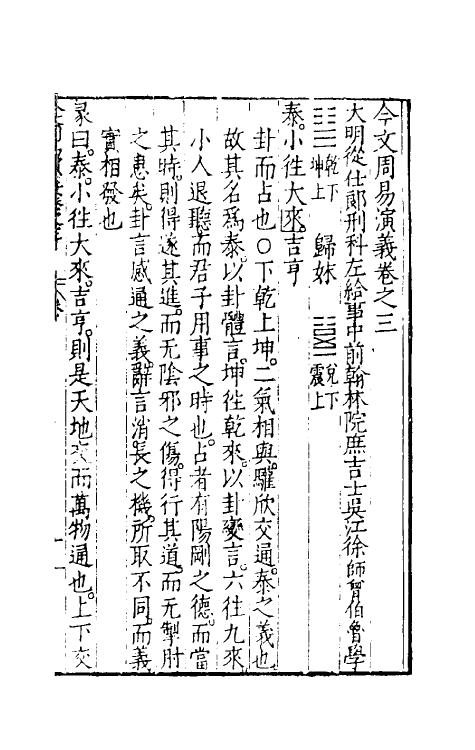 今文周易演義卷之三
大明從仕郎刑科左給事中前翰林院庶吉士吳江徐師曾伯魯學
䷊乾下坤上 歸妹 兌下震上
泰。小徃大來。吉亨
卦而占也○下乾上坤。二氣相與。驩欣交通。泰之義也
故其名爲泰。以卦體言。坤徃乾來。以卦變言。六徃九來
小人退聽。而君子用事之時也。占者有陽剛之德。而當
其時。則得遂其進。而无陰邪之傷。得行其道。而无掣肘
之患矣。卦言感通之義。辭言消長之機。所取不同。而義
實相發也
彖曰。泰。小徃大來。吉亨。則是天地交而萬物通也。上下交